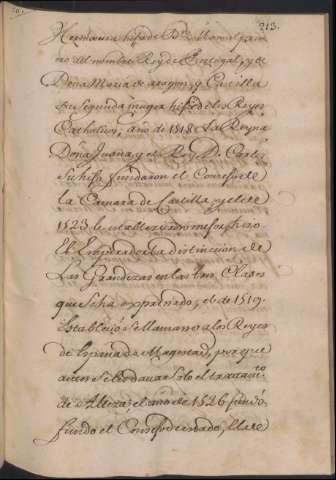 213.
Hermana e hija de Dn. Manuel prime
ro del nombre Rey de Portugal, y de
Doña Maria de aragon, y Castilla
su segunda muger hija de los Reyes
Catholicos, año de 1518 La Reyna
Doña Juana y el Rey D. Carlos
su hijo fundaron el Consejo de
la Camara de Castilla y el de
1523 le establecieron mejor, hizo
El Emperador la distincion de
Las Grandezas en las tres Clases
que se ha expresado, el de 1519.
establecio se llamasse a los Reyes
de España de Magestad, porque
antes se les dava solo el tratamto.
de Alteza; el año de 1526 fundo
fundo el Consejo de estado, el de